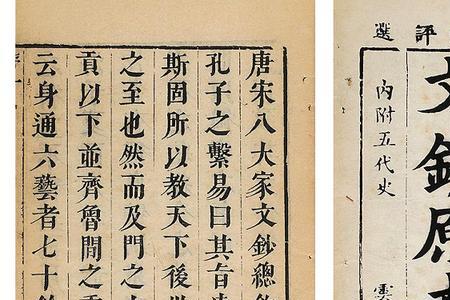 唐宋八大家文鈔總
孔子之繫易曰其旨
斯固所以教天下後世
之至也然而及門之
貢以下並齊魯間之
云身通六藝者七十餘
評選
文鈔原
內附五代史
雲